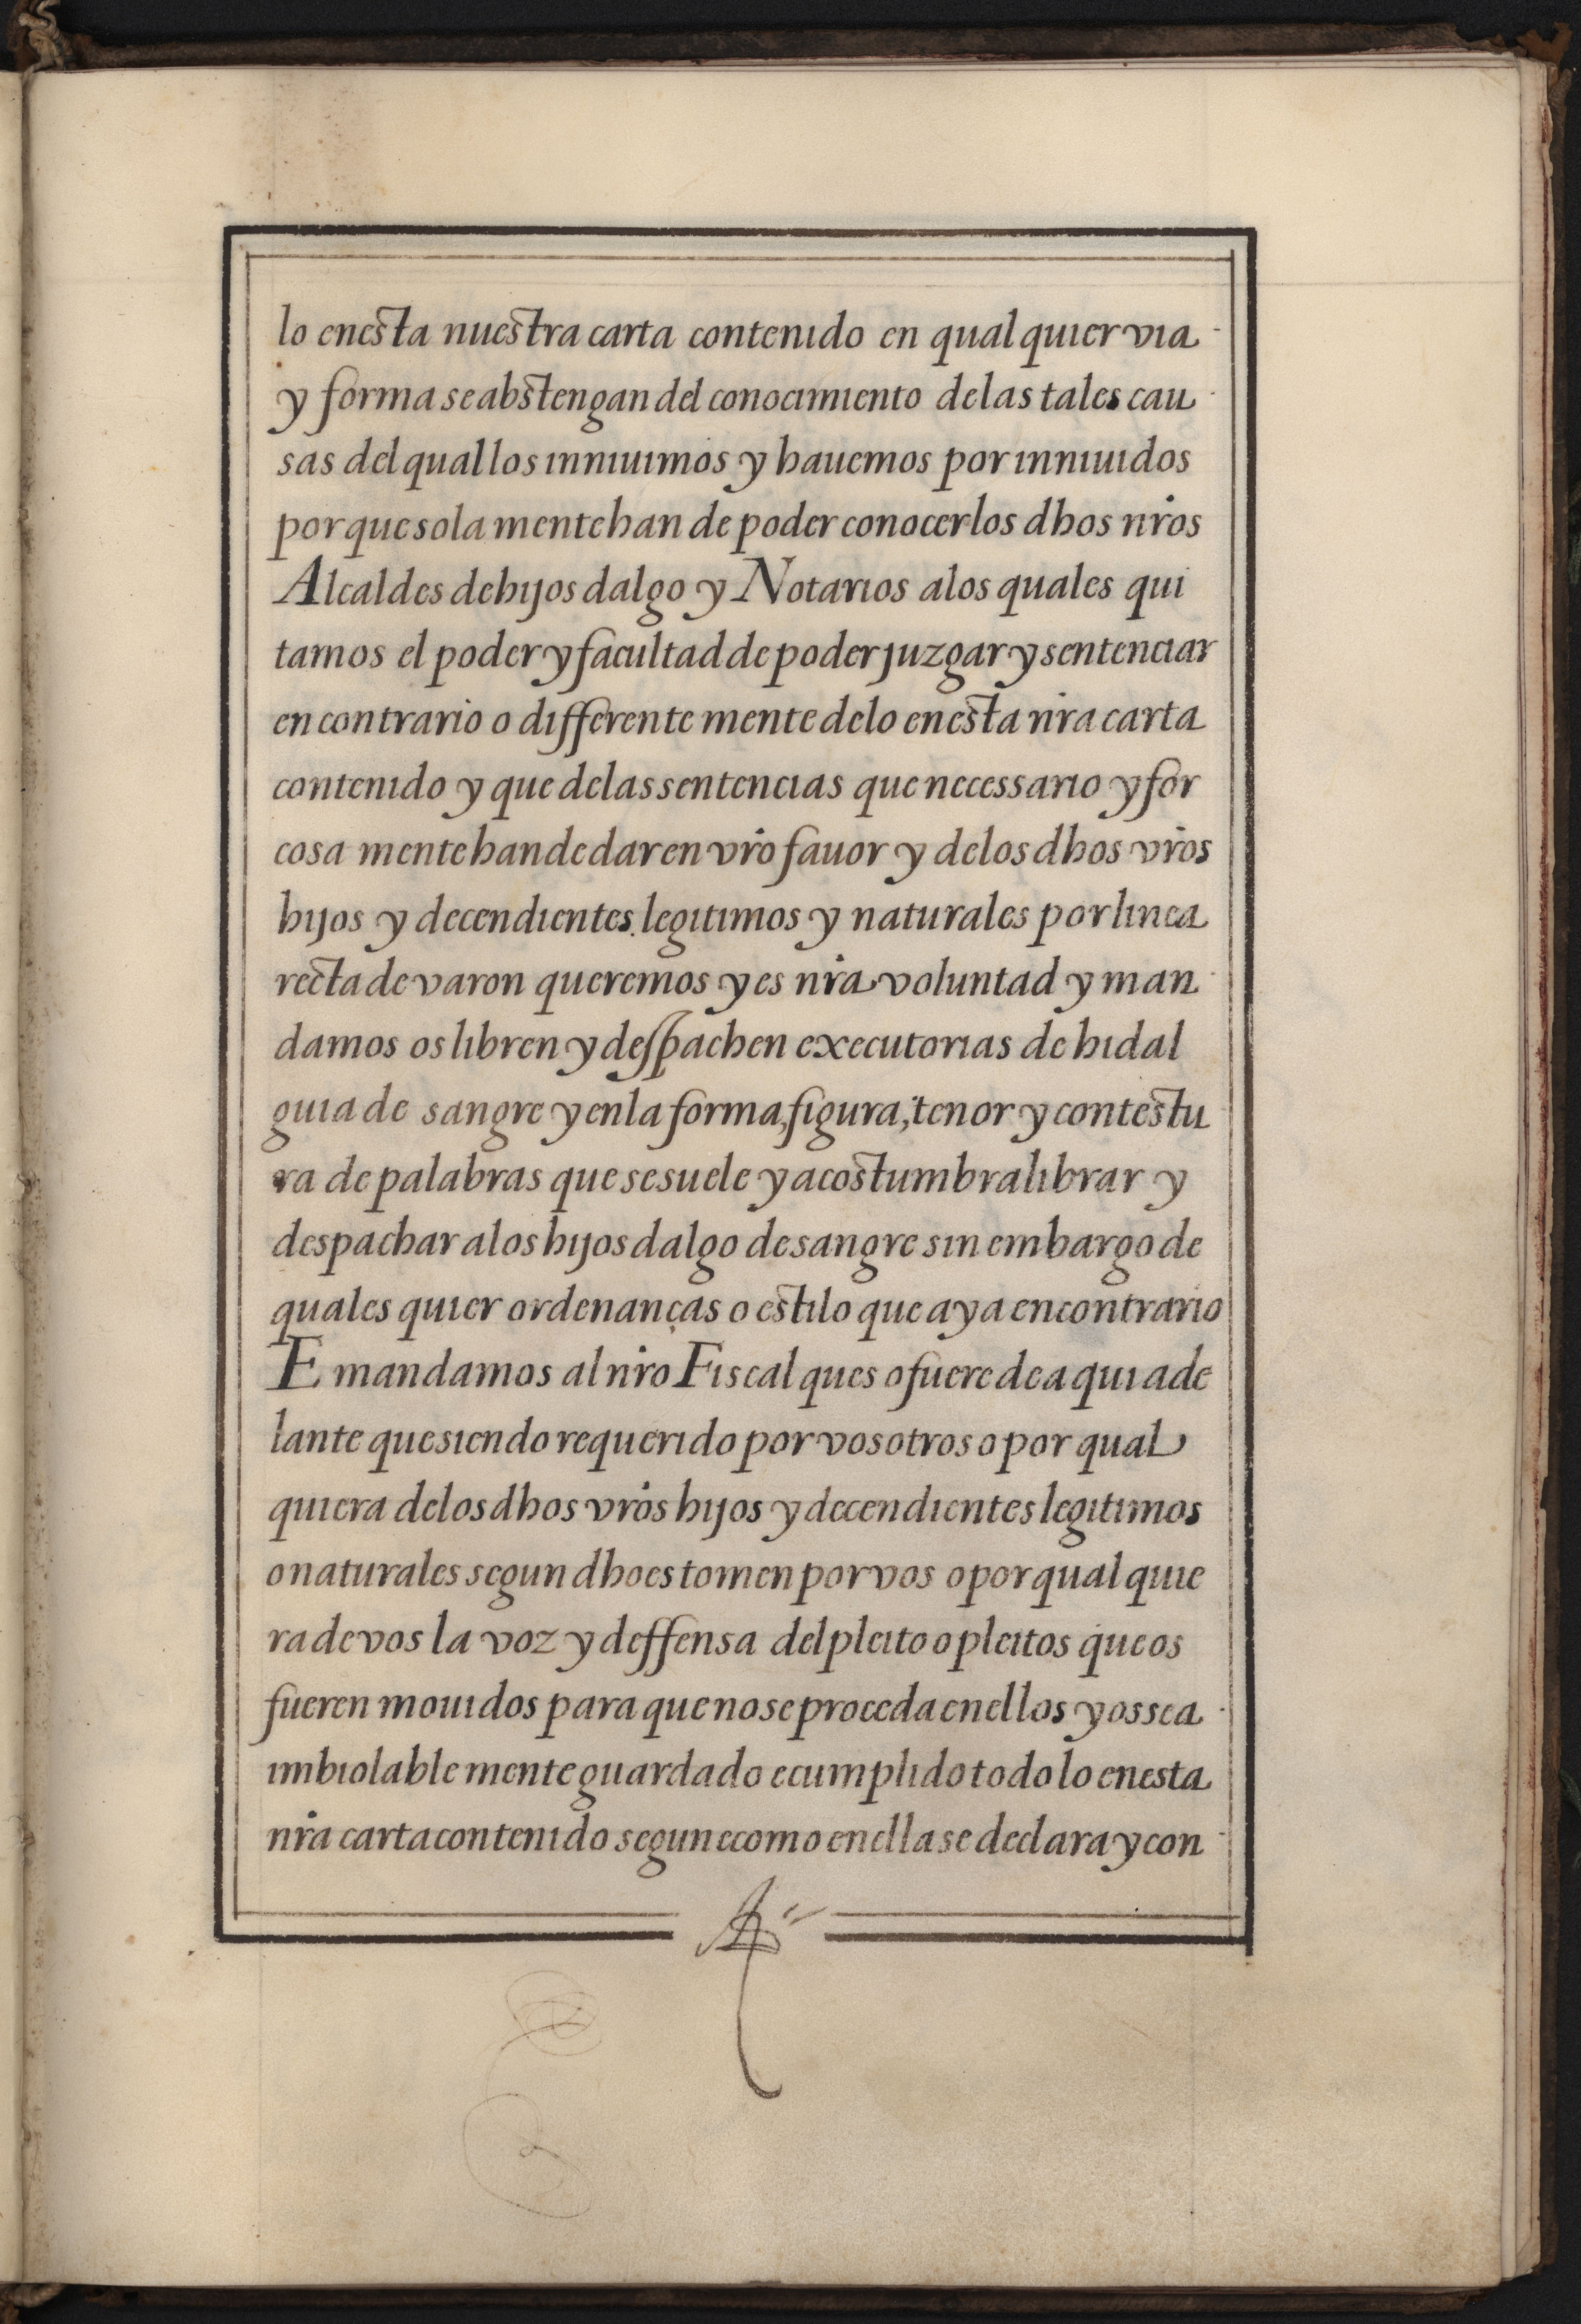 lo enesta nuestra carta contenido en qual quier via
y forma se abstengan del conocimiento de las tales cau
sas del qual los inniuimos y hauemos por inniuidos
porque sola mente han de poder conocer los dhos nros
Alcaldes de hijos dalgo y Notarios a los quales qui
tamos el poder y facultad de poder juzgar y sentenciar
en contrario o differente mente delo enesta nra carta
contenido y que delas sentencias que necessario y for
cosa mente han de dar en vro fauor y de los dhos vros
hijos y decendientes legitimos y naturales por linea
recta de varon queremos y es nra voluntad y man
damos os libren y despachen executorias de hidal
guia de sangre y en la forma, figura, tenor y contestu
ra de palabras que se suele y acostumbra librar y
despachar a los hijos dalgo de sangre sin embargo de
quales quier ordenanças o estilo que aya en contrario
E mandamos al nro Fiscal ques o fuere de a qui ade
lante que siendo requerido por vosotros o por qual
quiera delos dhos vros hijos y decendientes legitimos
o naturales segun dho es tomen por vos o por qual quie
ra de vos la voz y deffensa del pleito o pleitos que os
fueren mouidos para que no se proceda en ellos y os sea
imbiolable mente guardado e cumplido todo lo enesta
nra carta contenido segun e como en ella se declara y con